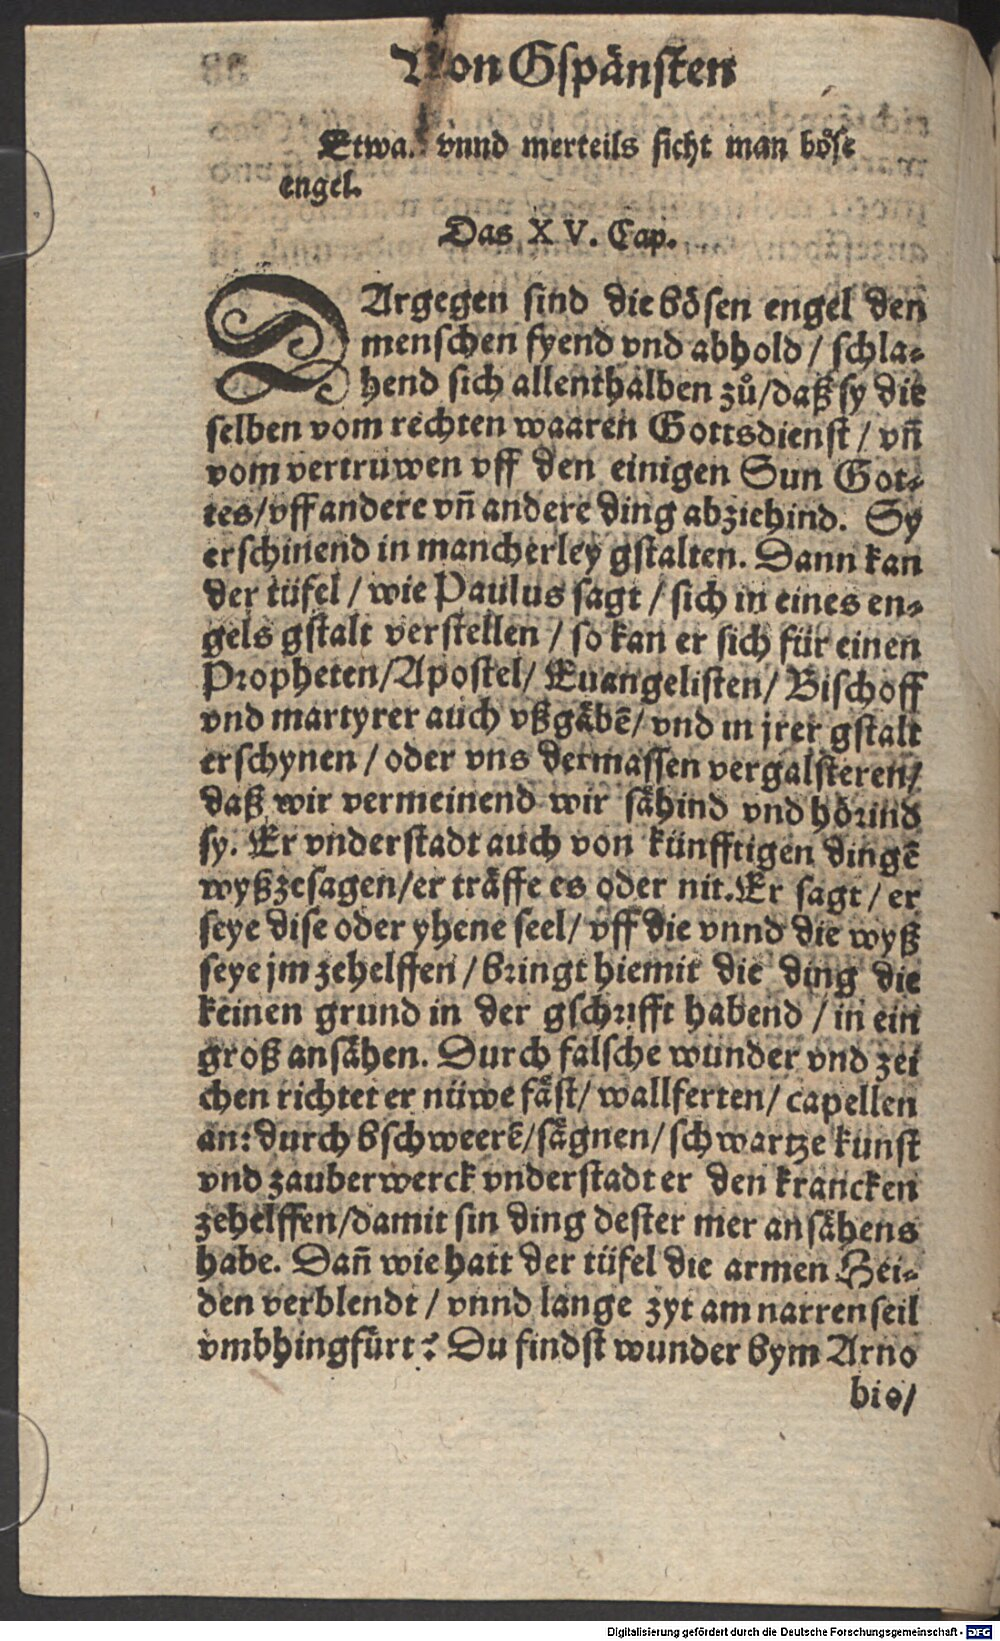 Von Gspånsten
Etwa. vnnd merteils sicht man bőse
engel.
Das XV. Cap.
DArgegen sind die bősen engel den
menschen fyend vnd abhold / schla⸗
hend sich allenthalben zů / daß sy die
selben vom rechten waaren Gottsdienst / vn̄
vom vertruwen vff den einigen Sun Got⸗
tes / vff andere vn̄ andere ding abziehind. Sy
erschinend in mancherley gstalten. Dann kan
der tüfel / wie Paulus sagt / sich in eines en⸗
gels gstalt verstellen / so kan er sich für einen
Propheten / Apostel / Euangelisten / Bischoff
vnd martyrer auch vßgåbē / vnd in jrer gstalt
erschynen / oder vns dermassen vergalsteren /
daß wir vermeinend wir såhind vnd hőrind
sy. Er vnderstadt auch von künfftigen dingē
wyßzesagen / er tråffe es oder nit. Er sagt / er
seye dise oder yhene seel / vff die vnnd die wyß
seye jm zehelffen / bringt hiemit die ding die
keinen grund in der gschrifft habend / in ein
groß ansåhen. Durch falsche wunder vnd zei
chen richtet er nüwe fåst / wallferten / capellen
an: durch bschweerē / sågnen / schwartze kunst
vnd zauberwerck vnderstadt er den krancken
zehelffen / damit sin ding dester mer ansåhens
habe. Dan̄ wie hatt der tüfel die armen Hei⸗
den verblendt / vnnd lange zyt am narrenseil
vmbhingfürt? Du findst wunder bym Arno
bio /
Digitalisierung gefördert durch die Deutsche Forschungsgemeinschaft - DFG